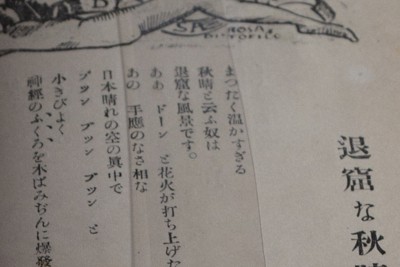 B
SA
ROSA
退窟な秋晴
まつたく温かすぎる
秋晴と云ふ奴は
退窟な風景です。
ああ ドーン と花火が打ち上げた
あの 手應のなさ相な
日本晴れの空の眞中で
プツン プツン プツン と
小きびよく
神經のふくろを木ばみぢんに爆發